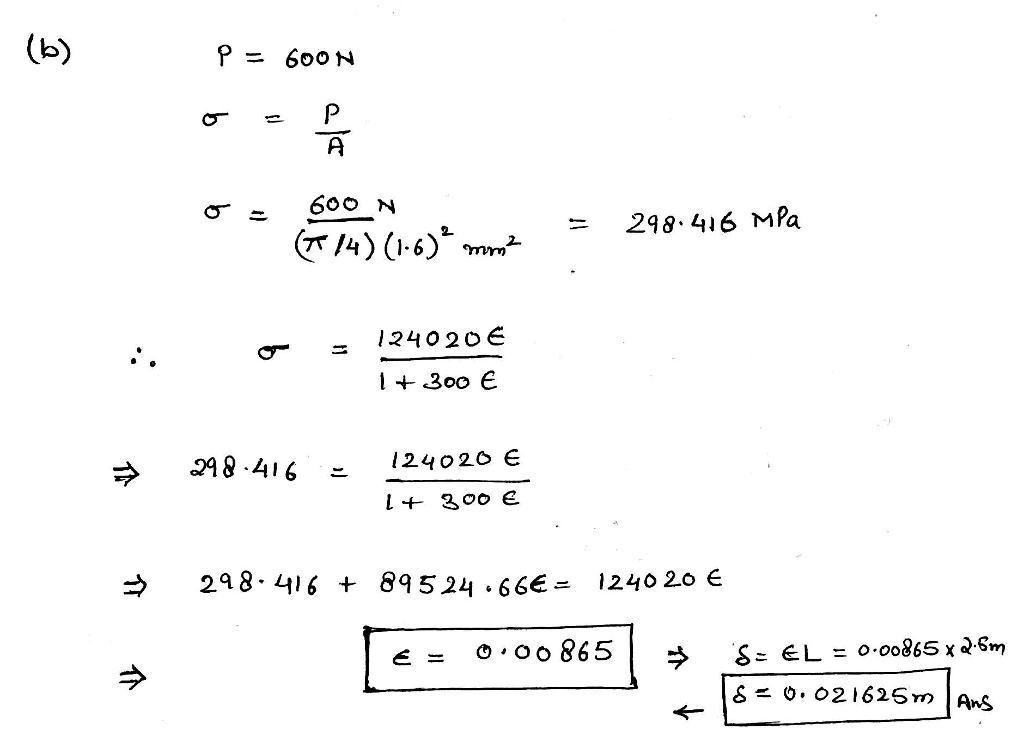 (b) P = 600N
σ = P/A
σ = 600 N / (π/4)(1.6)² mm² = 298.416 MPa
∴ σ = 124020ϵ / 1 + 300 ϵ
⇒ 298.416 = 124020 ϵ / 1 + 300 ϵ
⇒ 298.416 + 89524.66ϵ = 124020 ϵ
⇒ ϵ = 0.00865 ⇒ δ = ϵL = 0.00865 x 2.5m
← δ = 0.021625m Ans